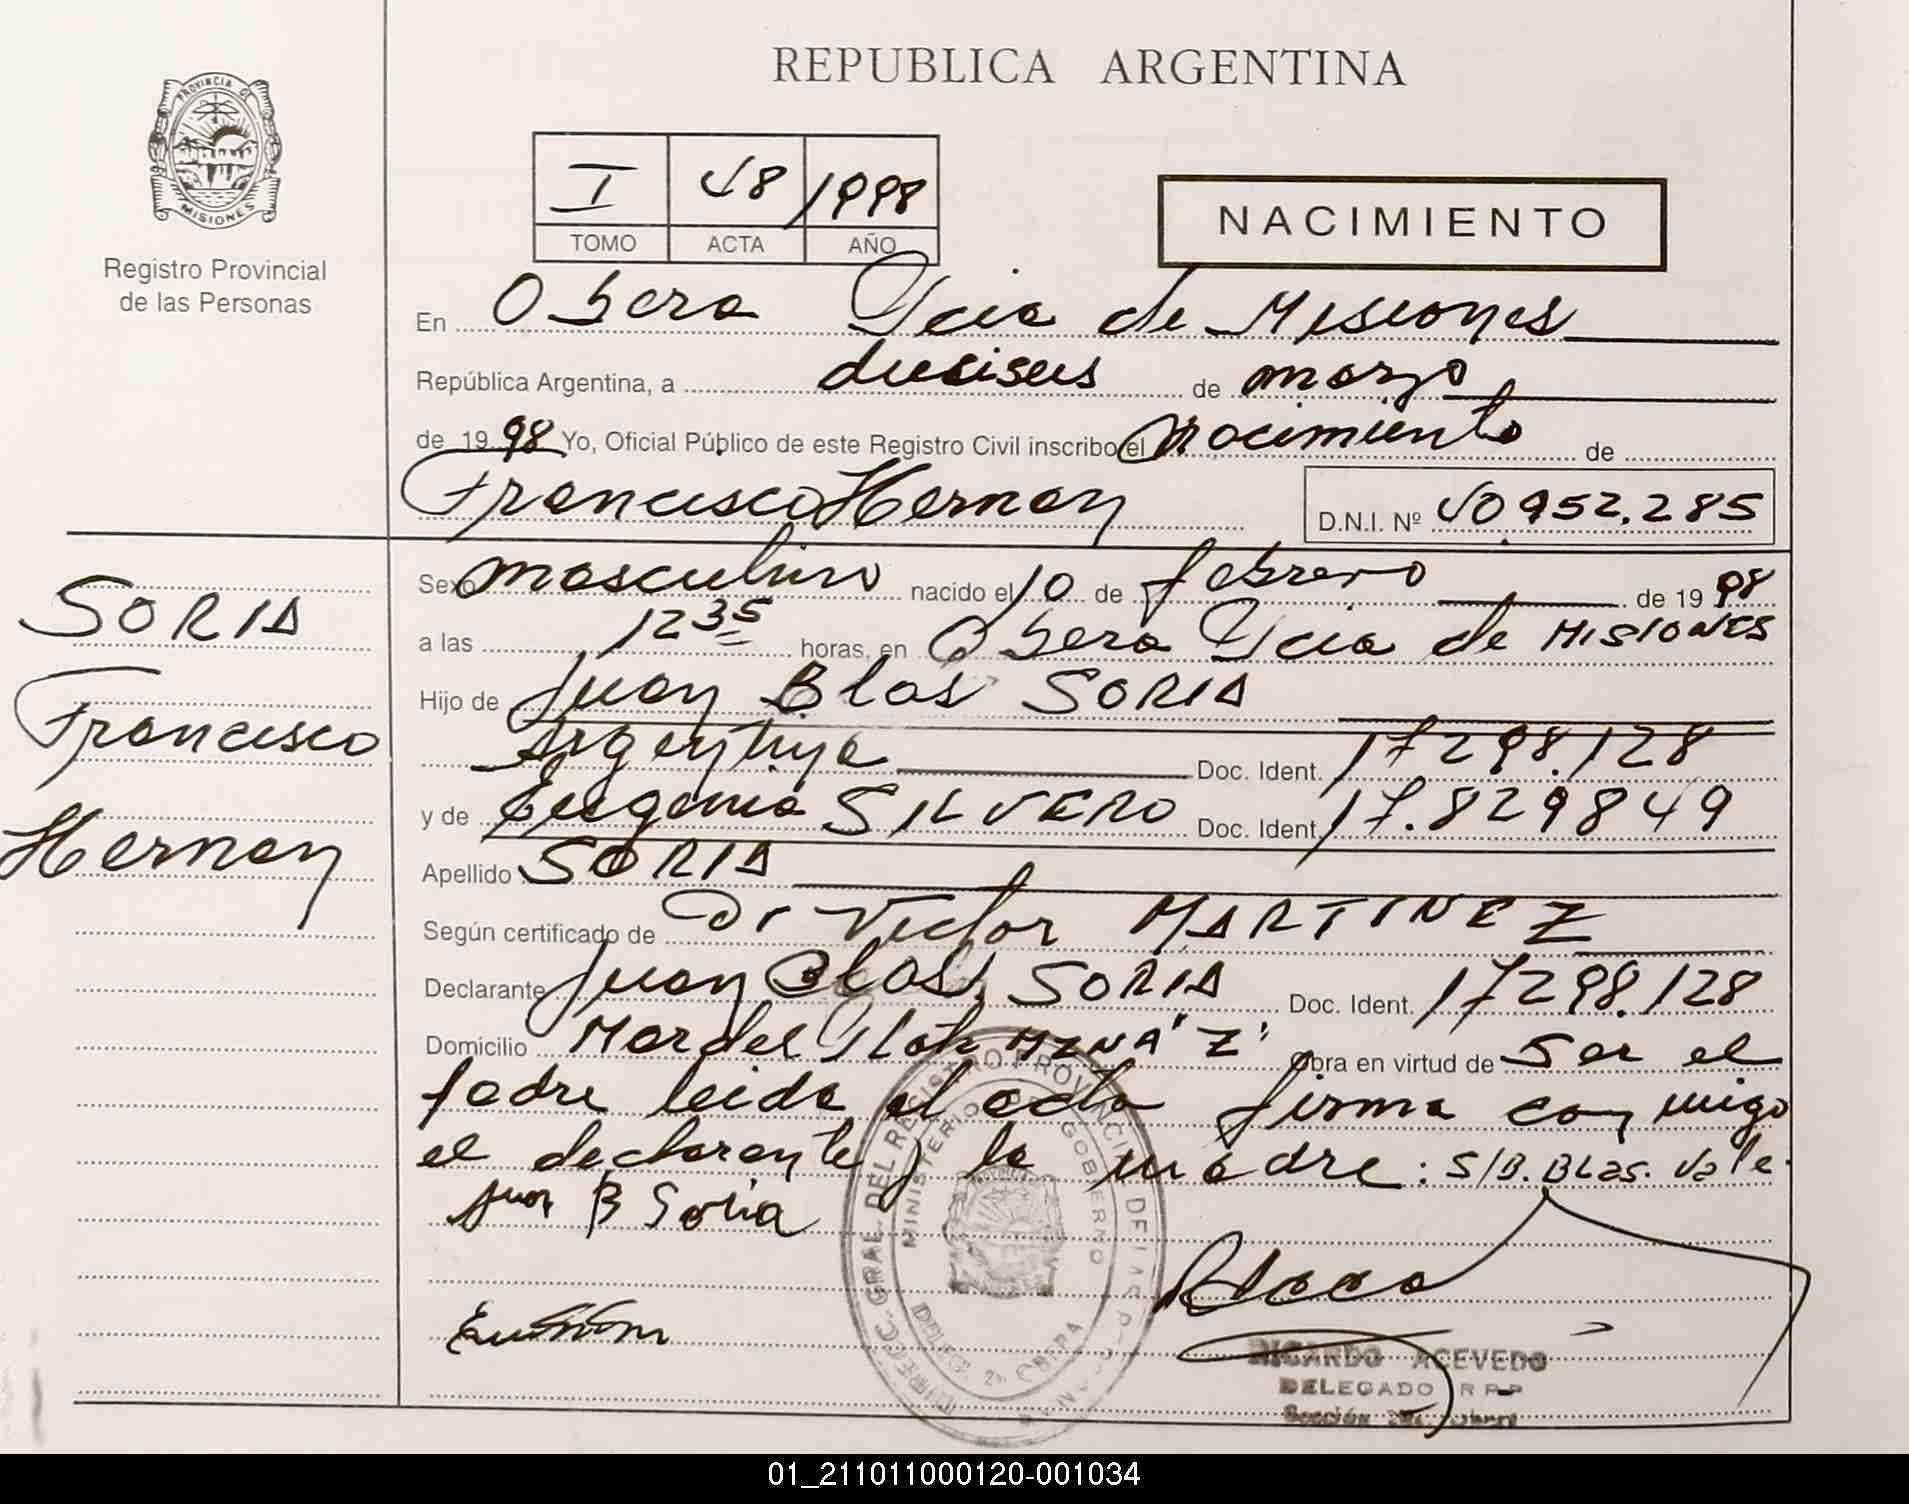 REPUBLICA ARGENTINA
PROVINCIA DE
MISIONES
Registro Provincial
de las Personas
I 48 /1998
TOMO ACTA AÑO
NACIMIENTO
En Obera Pcia de Misiones
República Argentina, a dieciseis de marzo
de 1998 Yo, Oficial Público de este Registro Civil inscribo el nacimiento de
Francisco Hernan D.N.I. Nº 40.952.285
Sexo masculino nacido el 10 de febrero de 1998
a las 12 35 horas, en Obera Pcia de MISIONES
Hijo de Juan Blas SORIA
Argentina Doc. Ident. 17298.128
y de Eugenia SILVERO Doc. Ident. 17.829849
Apellido SORIA
Según certificado de Dr Victor MARTINEZ
Declarante Juan Blas SORIA Doc. Ident. 17298.128
Domicilio Mar del Plata MZNA "Z" Obra en virtud de Ser el
padre leida el acta firma conmigo
el declarante y la madre: S/B. Blas. Vale.
Juan B Soria
SORIA
Francisco
Hernan
DIRECC. GRAL. DEL REGISTRO PROVINCIAL DE LAS P
MINISTERIO DE GOBIERNO
DELEG. 2ª OBERA
RICARDO ACEVEDO
DELEGADO R.P.P
Sección 2da. Obera
01_211011000120-001034